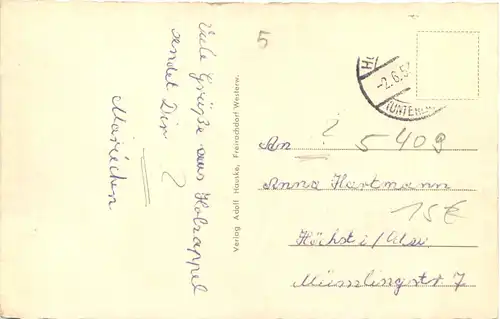 Viele Grüße aus Holzappel
sendet Dir
Mariechen
Verlag Adolf Hauske, Freirachdorf Westerw.
5
-2.6.5
(UNTERL
An ? 5409
Anna Hartmann
15€
Höchst i/Odw.
Mümlingstr 7